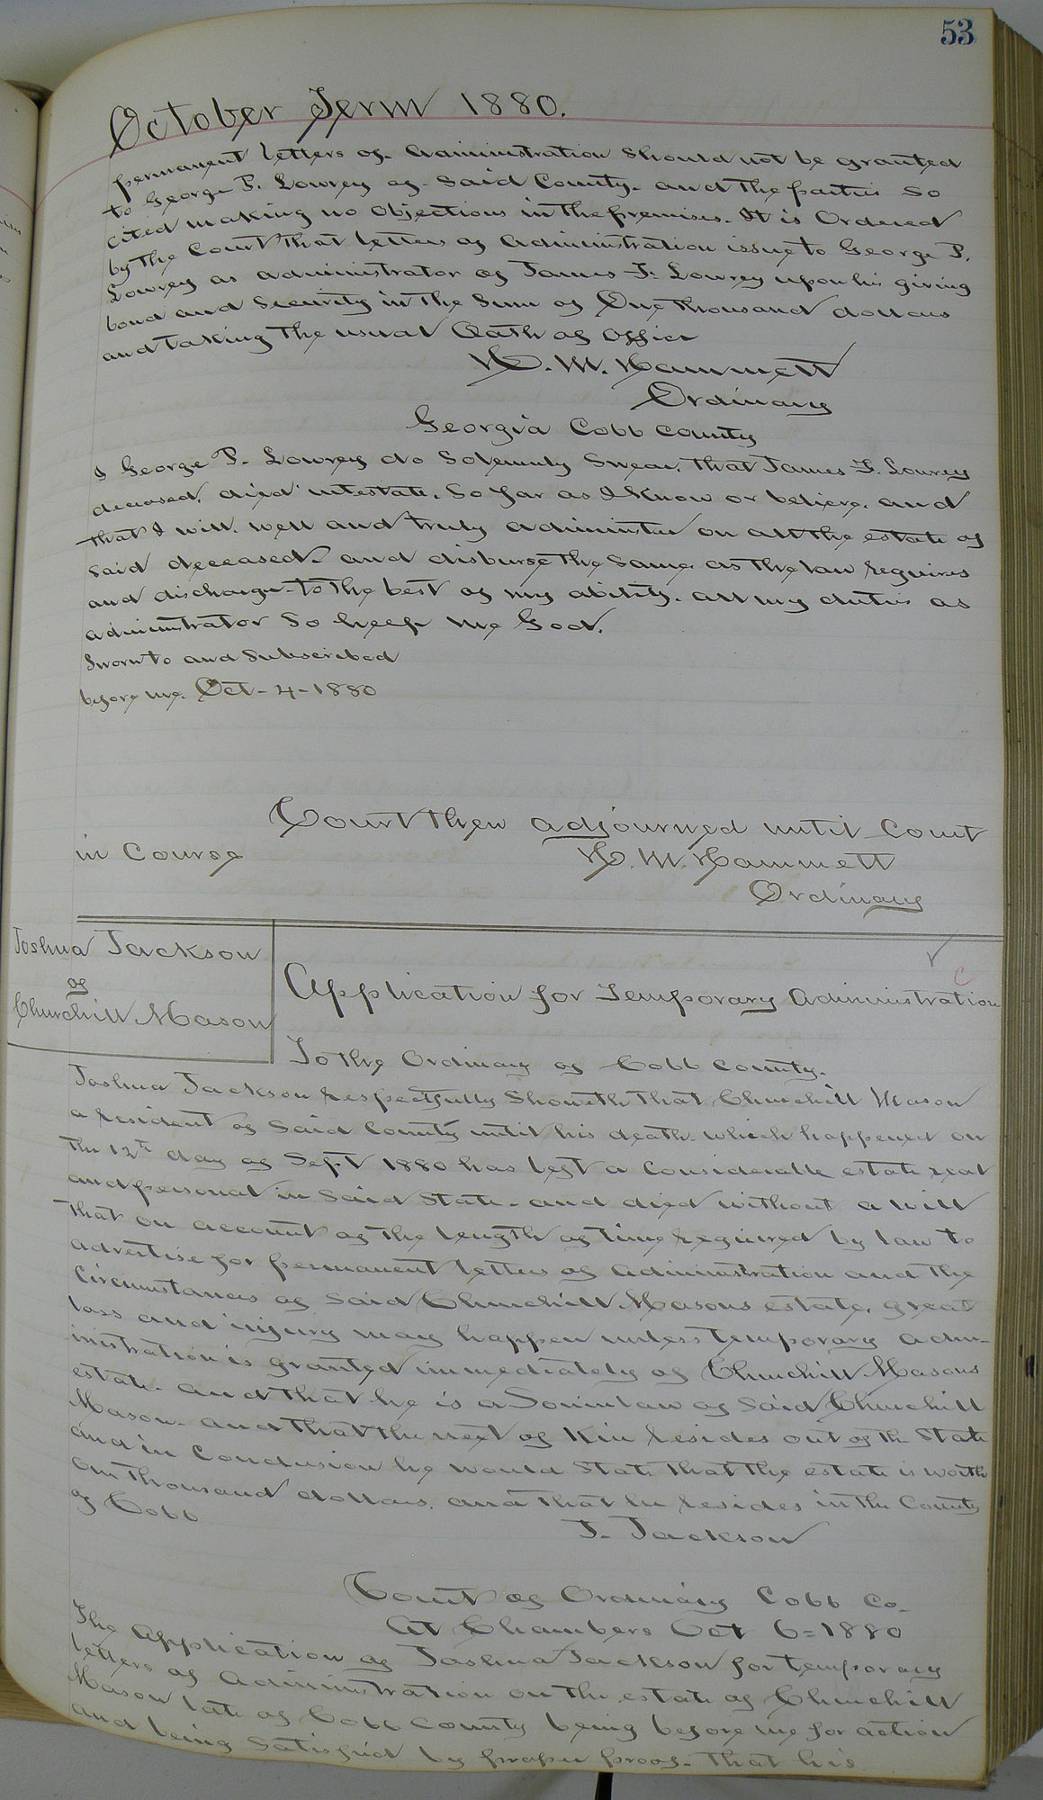 53
October Term 1880.
permanent letters of Administration should not be granted
to George P. Lowrey of said County. and the parties so
cited making no objections in the premises. It is Ordered
by the Court that letters of Administration issue to George P.
Lowrey as administrator of James F. Lowrey upon his giving
bond and Security in the Sum of One thousand dollars
and taking the usual Oath of office
H. M. Hammett
Ordinary
Georgia Cobb County
I George P. Lowrey do Solemnly Swear. that James F. Lowrey
deceased, died intestate, So far as I know or believe. and
that I will. well and truly administer on all the estate of
said deceased. and disburse the same. as the law requires
and discharge to the best of my ability. all my duties as
administrator So help me God.
Sworn to and Subscribed
before me. Oct - 4 - 1880
Court then adjourned until Court
in Course
H. M. Hammett
Ordinary
Joshua Jackson
of
Churchill Mason
Application for Temporary Administration
To the Ordinary of Cobb County.
Joshua Jackson respectfully Showeth that Churchill Mason
a resident of Said County until his death. which happened on
the 12th day of Sept 1880 has left a Considerable estate real
and personal in said State. and died without a will
that on account of the length of time required by law to
advertise for permanent letters of administration and the
Circumstances of said Churchill Masons estate, great
loss and injury may happen unless temporary Admi-
nistration is granted immediately of Churchill Masons
estate. and that he is a Soninlaw of said Churchill
Mason. and that the next of Kin resides out of the State
and in Conclusion he would State that the estate is worth
One thousand dollars. and that he resides in the County
of Cobb
J. Jackson
Court of Ordinary Cobb Co.
At Chambers Oct 6 = 1880
The Application of Joshua Jackson for temporary
letters of Administration on the estate of Churchill
Mason late of Cobb County being before me for action
and being Satisfied by proper proof. that his